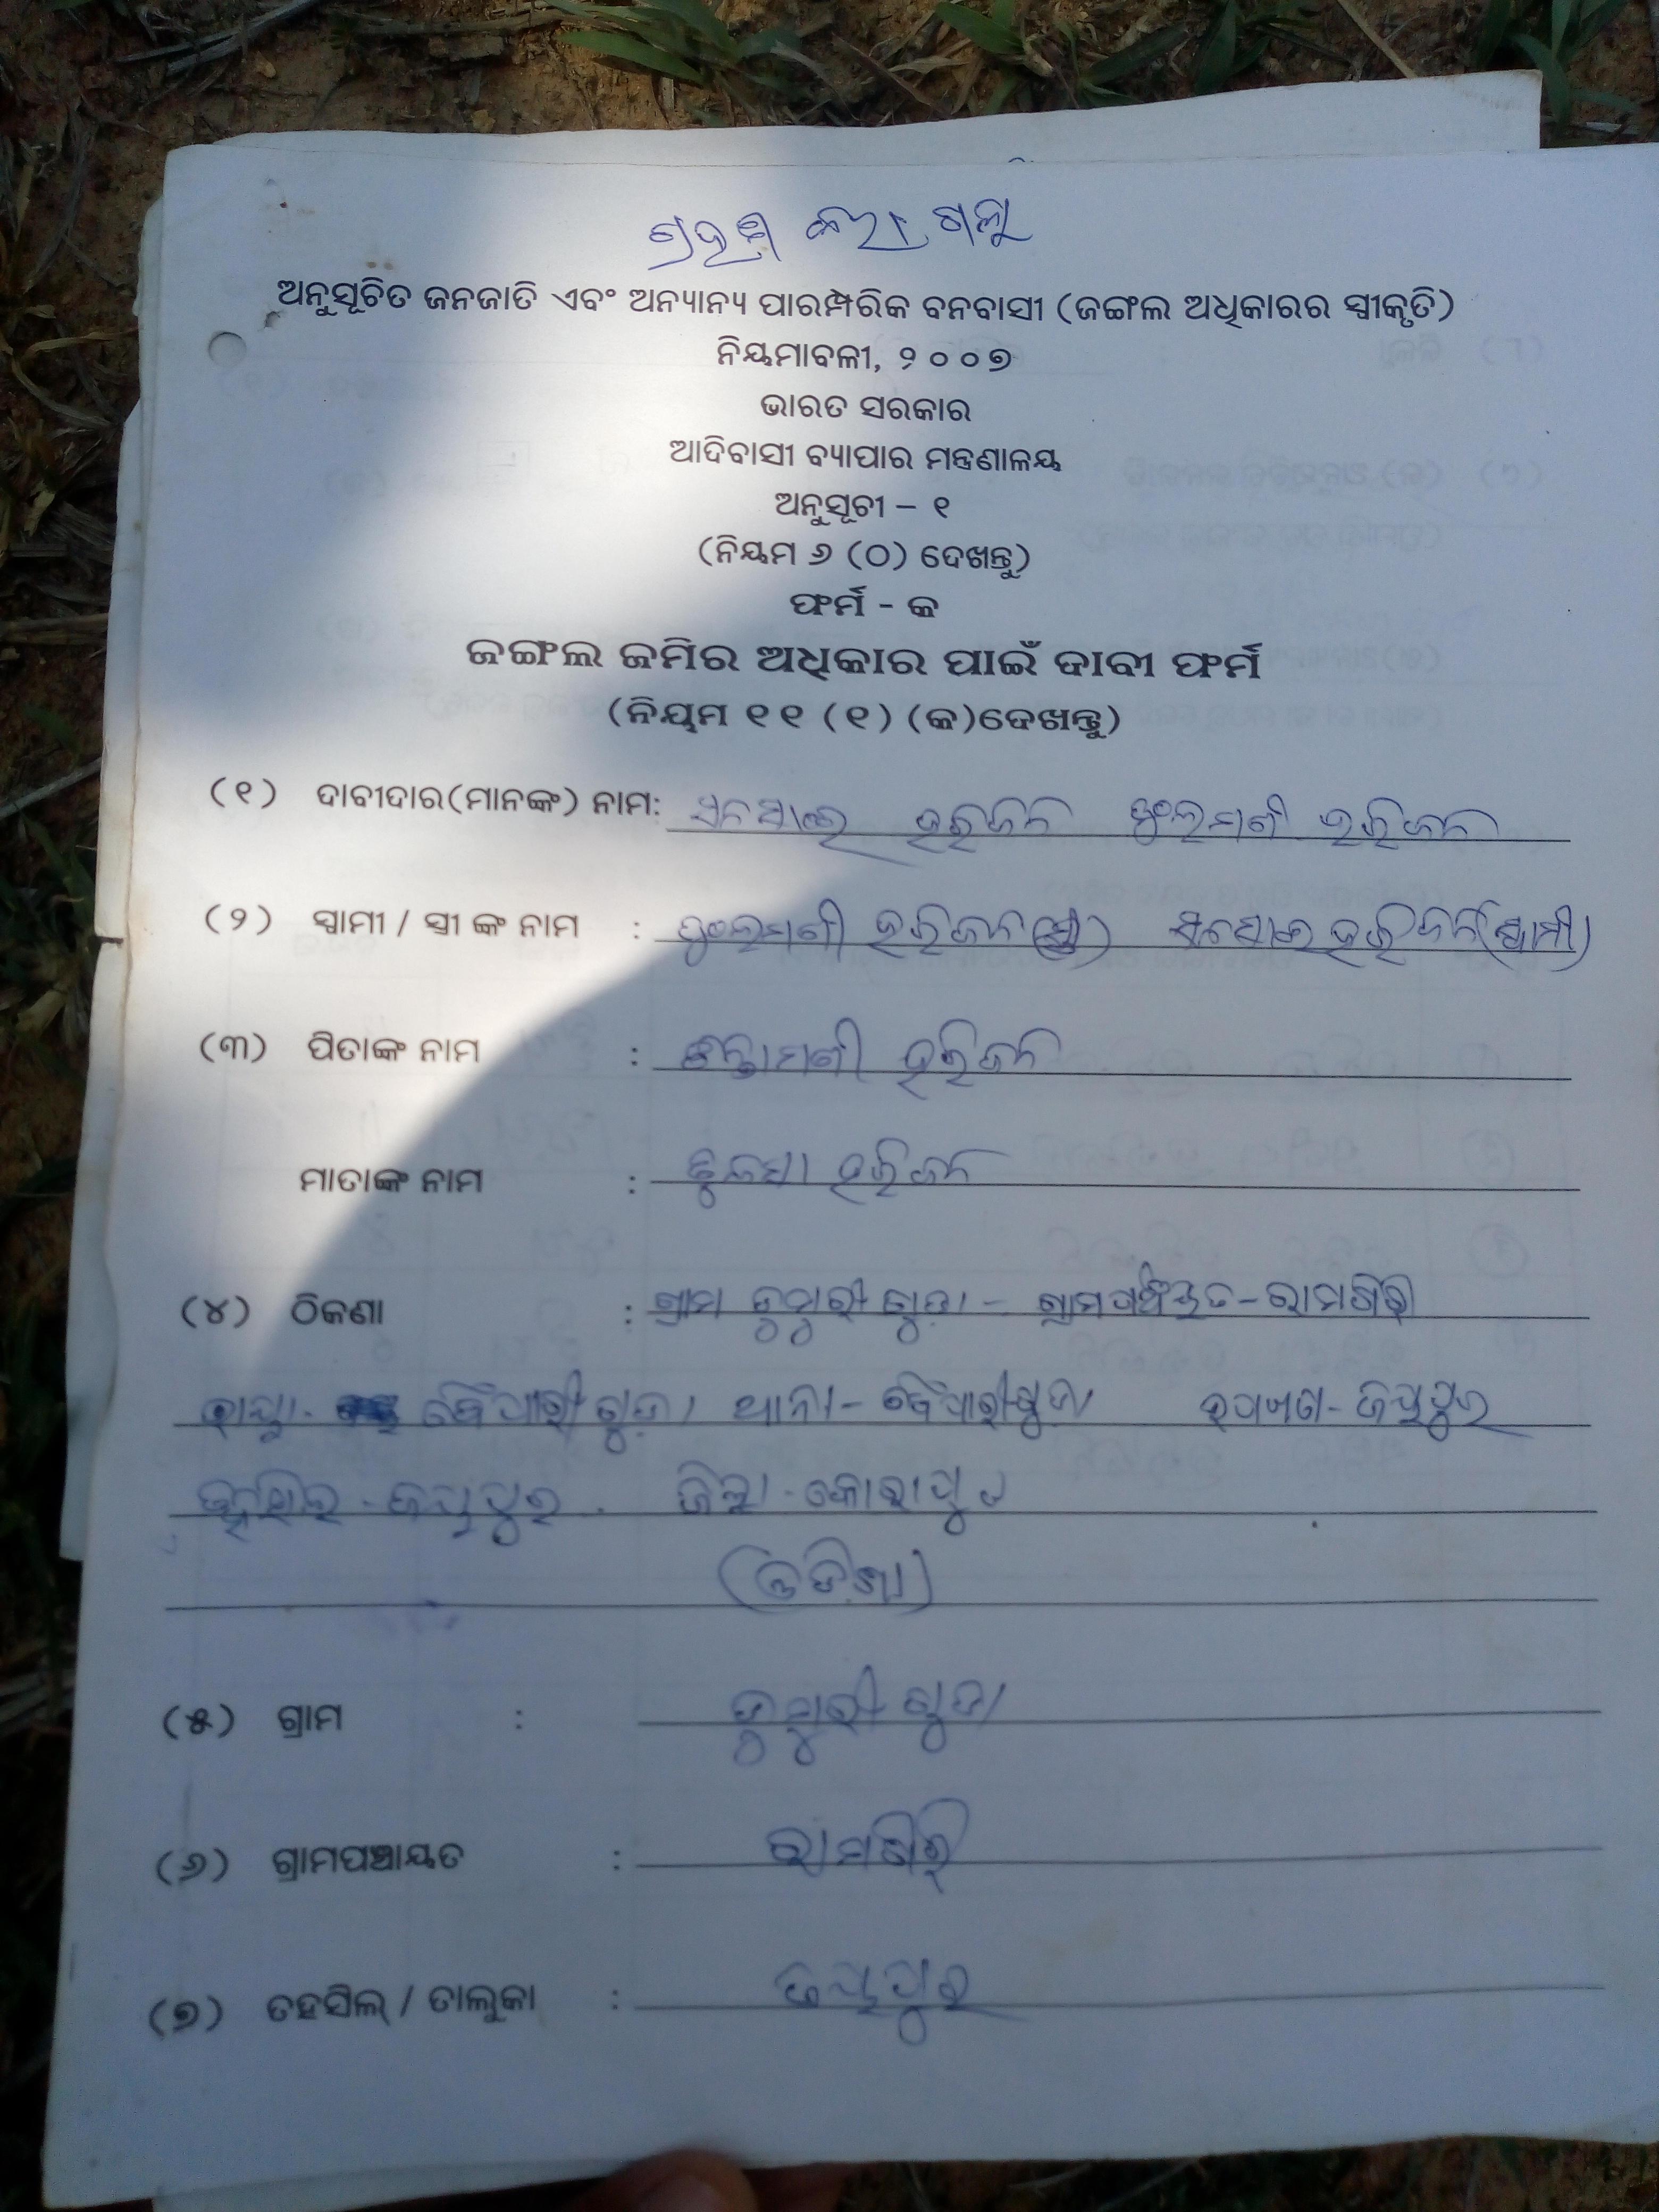 ଗ୍ରହଣ କରା ଗଲା
ଅନୁସୂଚିତ ଜନଜାତି ଏବଂ ଅନ୍ୟାନ୍ୟ ପାରମ୍ପରିକ ବନବାସୀ (ଜଙ୍ଗଲ ଅଧିକାରର ସ୍ୱୀକୃତି)
ନିୟମାବଳୀ, ୨୦୦୭
ଭାରତ ସରକାର
ଆଦିବାସୀ ବ୍ୟାପାର ମନ୍ତ୍ରଣାଳୟ
ଅନୁସୂଚୀ – ୧
(ନିୟମ ୬ (ଠ) ଦେଖନ୍ତୁ)
ଫର୍ମ - କ
ଜଙ୍ଗଲ ଜମିର ଅଧିକାର ପାଇଁ ଦାବୀ ଫର୍ମ
(ନିୟମ ୧୧ (୧) (କ)ଦେଖନ୍ତୁ)
(୧) ଦାବୀଦାର(ମାନଙ୍କ) ନାମ: ହରିଜନ ଫୁଲମଣୀ ହରିଜନ
(୨) ସ୍ୱାମୀ / ସ୍ତ୍ରୀ ଙ୍କ ନାମ : ଫୁଲମଣୀ ହରିଜନ(ସ୍ତ୍ରୀ) ହରିଜନ(ସ୍ୱାମୀ)
(୩) ପିତାଙ୍କ ନାମ : ହରିଜନ
ମାତାଙ୍କ ନାମ : ହରିଜନ
(୪) ଠିକଣା : ଗ୍ରାମ ଡୁମୁରୀ ଗୁଡ଼ା – ଗ୍ରାମପଞ୍ଚାୟତ–ରାମଗିରି
ଥାନା– ବୈପାରୀଗୁଡା ଜୟପୁର
ତହସିଲ - ଜୟପୁର . ଜିଲ୍ଲା - କୋରାପୁଟ
(ଓଡିଶା)
(୫) ଗ୍ରାମ : ଡୁମୁରୀ ଗୁଡା
(୬) ଗ୍ରାମପଞ୍ଚାୟତ : ରାମଗିରି
(୭) ତହସିଲ୍ / ତାଲୁକା : ଜୟପୁର